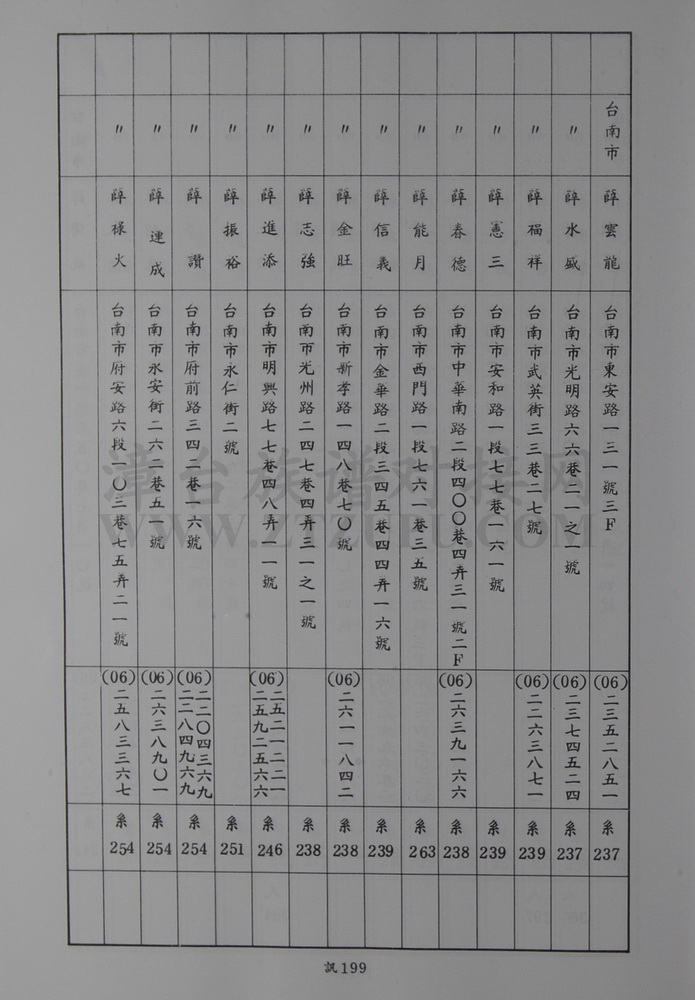 台南市 薛雲龍 台南市東安路一三一號三F (06)二三五二八五一 系237
〃 薛水盛 台南市光明路六六巷二一之一號 (06)二三七四五二四 系237
〃 薛福祥 台南市武英街三三巷二七號 (06)二二六三八七一 系239
〃 薛憲三 台南市安和路一段七七巷一六一號 系239
〃 薛春德 台南市中華南路二段四〇〇巷四弄三一號二F (06)二六三九一六六 系238
〃 薛能月 台南市西門路一段七六一巷三五號 系263
〃 薛信義 台南市金華路二段三四五巷四四弄一六號 系239
〃 薛金旺 台南市新孝路一四八巷七〇號 (06)二六一一八四二 系238
〃 薛志強 台南市光州路二四七巷四弄三一之一號 系238
〃 薛進添 台南市明興路七七巷四八弄一一號 (06)二五二一二二一 二五九二五六六 系246
〃 薛振裕 台南市永仁街二號 系251
〃 薛讚 台南市府前路三四二巷一六號 (06)二二〇四三六九 二二八四九六九 系254
〃 薛連成 台南市永安街二六二巷五一號 (06)二六三八九〇一 系254
〃 薛祿火 台南市府安路六段一〇三巷七五弄二一號 (06)二五八三三六七 系254
訊199
漳台族谱对接网
WWW.ZTZUPU.COM